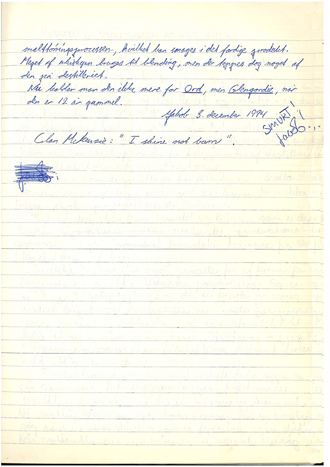 malttørringsprocessen, hvilket kan smages i det færdige produkt.
Meget af whiskyen bruges til blending, men der tappes dog noget af
den på destilleriet.
Nu kalder man den ikke mere for Ord, men Glenordie, når
den er 12 år gammel.
Jakob 3. december 1994
SMURT!
Jacob!
Clan McKenzie: "I shine not burn".